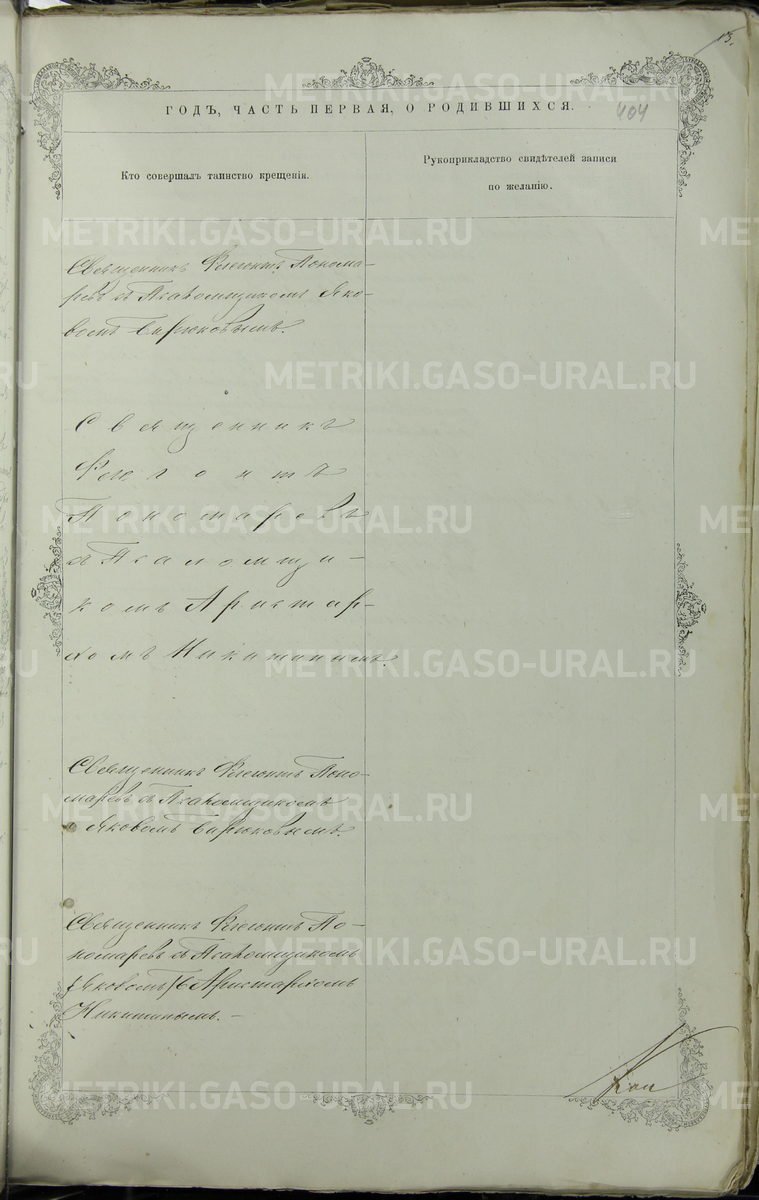 13.
404
ГОДЪ, ЧАСТЬ ПЕРВАЯ, О РОДИВШИХСЯ.
Кто совершалъ таинство крещенія.
Рукоприкладство свидѣтелей записи
по желанію.
METRIKI.GASO-URAL.RU
Священникъ Флегонтъ Понома-
ревъ съ Псаломщикомъ Яко-
вомъ Бирюковымъ.
Священникъ
Флегонтъ
Пономаревъ
съ Псаломщи-
комъ Аристар-
хомъ Никитинымъ.
Священникъ Флегонтъ Поно-
маревъ съ Псаломщикомъ
Яковомъ Бирюковымъ.
Священникъ Флегонтъ По-
номаревъ съ Псаломщикомъ
Яковомъ Аристархомъ
Никитинымъ. –